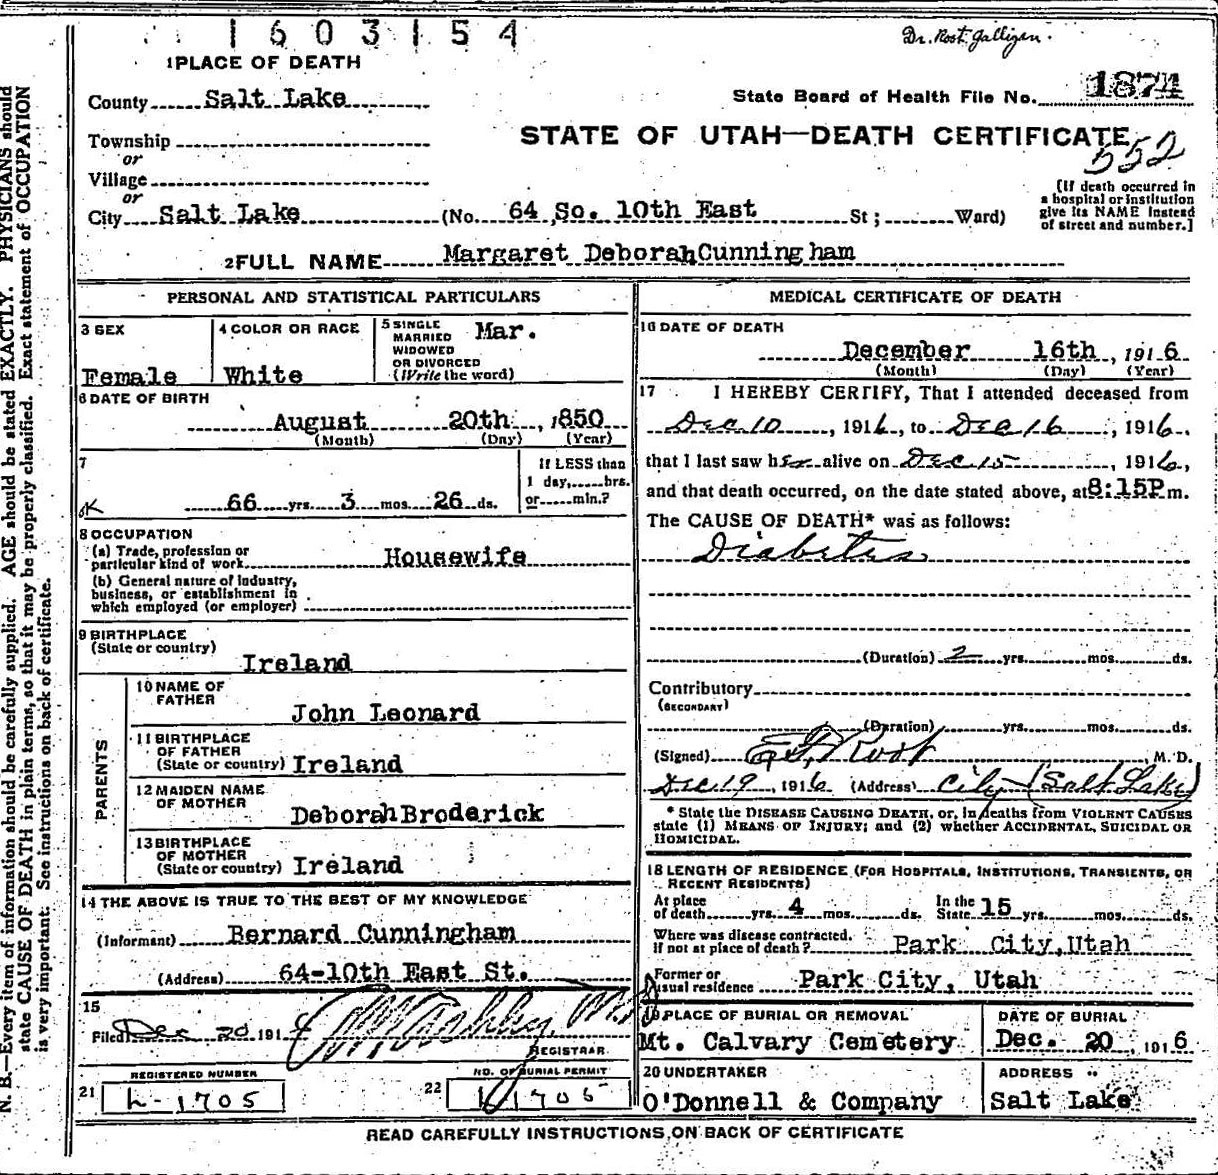 1603154
Dr. Root Galligan.
1 PLACE OF DEATH
County Salt Lake
State Board of Health File No. 1874
Township
or
STATE OF UTAH—DEATH CERTIFICATE
552
Village
or
City Salt Lake (No. 64 So. 10th East St; Ward)
[If death occurred in
a hospital or institution
give its NAME instead
of street and number.]
2 FULL NAME Margaret Deborah Cunningham
PERSONAL AND STATISTICAL PARTICULARS
3 SEX
Female
4 COLOR OR RACE
White
5 SINGLE
MARRIED
WIDOWED
OR DIVORCED
(Write the word)
Mar.
6 DATE OF BIRTH
August 20th, 1850
(Month) (Day) (Year)
7
OK 66 yrs. 3 mos. 26 ds.
If LESS than
1 day, hrs.
or min.?
8 OCCUPATION
(a) Trade, profession or
particular kind of work Housewife
(b) General nature of Industry,
business, or establishment in
which employed (or employer)
9 BIRTHPLACE
(State or country)
Ireland
PARENTS
10 NAME OF
FATHER
John Leonard
11 BIRTHPLACE
OF FATHER
(State or country) Ireland
12 MAIDEN NAME
OF MOTHER
Deborah Broderick
13 BIRTHPLACE
OF MOTHER
(State or country) Ireland
14 THE ABOVE IS TRUE TO THE BEST OF MY KNOWLEDGE
(Informant) Bernard Cunningham
(Address) 64-10th East St.
15
Filed Dec 20 191
REGISTRAR
REGISTERED NUMBER
21 L-1705
NO. OF BURIAL PERMIT
22 1705
MEDICAL CERTIFICATE OF DEATH
16 DATE OF DEATH
December 16th, 1916
(Month) (Day) (Year)
17 I HEREBY CERTIFY, That I attended deceased from
Dec 10, 1916, to Dec 16, 1916,
that I last saw her alive on Dec 15, 1916,
and that death occurred, on the date stated above, at 8:15P m.
The CAUSE OF DEATH* was as follows:
Diabetes
(Duration) 2 yrs. mos. ds.
Contributory
(SECONDARY)
(Duration) yrs. mos. ds.
(Signed) Root, M. D.
Dec 19, 1916 (Address) City (Salt Lake)
* State the DISEASE CAUSING DEATH, or, in deaths from VIOLENT CAUSES
state (1) MEANS OF INJURY; and (2) whether ACCIDENTAL, SUICIDAL OR
HOMICIDAL.
18 LENGTH OF RESIDENCE (FOR HOSPITALS, INSTITUTIONS, TRANSIENTS, OR
RECENT RESIDENTS)
At place
of death yrs. 4 mos. ds.
In the
State 15 yrs. mos. ds.
Where was disease contracted.
if not at place of death? Park City, Utah
Former or
usual residence Park City, Utah
19 PLACE OF BURIAL OR REMOVAL
Mt. Calvary Cemetery
DATE OF BURIAL
Dec. 20, 1916
20 UNDERTAKER
O'Donnell & Company
ADDRESS
Salt Lake
READ CAREFULLY INSTRUCTIONS ON BACK OF CERTIFICATE
N. B.—Every item of information should be carefully supplied. AGE should be stated EXACTLY. PHYSICIANS should
state CAUSE OF DEATH in plain terms, so that it may be properly classified. Exact statement of OCCUPATION
is very important. See instructions on back of certificate.